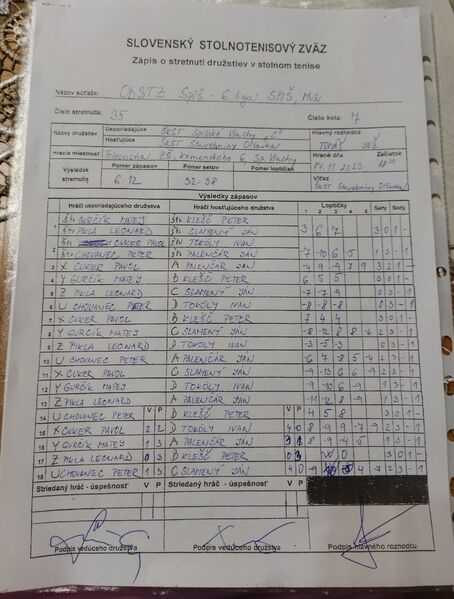 SLOVENSKÝ STOLNOTENISOVÝ ZVÄZ
Zápis o stretnutí družstiev v stolnom tenise
Názov súťaže: ObSTZ Spiš - 6. liga SPIŠ, Muži
Číslo stretnutia: 35 Číslo kola: 7
Názvy družstiev Usporiadajúce ŠKST Spišské Vlachy "C" Hlavný rozhodca
Hosťujúce ŠKST Stavebniny Oľšavka
Hracia miestnosť Telocvičňa ZŠ, Komenského 6, Sp. Vlachy Hrané dňa Začiatok
Výsledok stretnutia Pomer zápasov Pomer setov Pomer loptičiek 14.11.2023 Víťaz
6:12 32-38 ŠKST Stavebniny Oľšavka
Výsledky zápasov
Hráči usporiadajúceho družstva Hráči hosťujúceho družstva Loptičky Sety Body
1 2 3 4 5
1 GURČÍK MATEJ KLEŠČ PETER
PIKLA LEONARD SLAMENÝ JÁN 3 6 7 3 0 1 -
2 CUKER PAVOL TOKÖLY IVAN
CHOVANEC PETER PALENČÁR JÁN -7 -10 6 -5 1 3 - 1
3 X CUKER PAVOL A PALENČÁR JÁN -4 9 -9 7 9 3 2 1 -
4 Y GURČÍK MATEJ B KLEŠČ PETER 6 5 5 3 0 1 -
5 Z PIKLA LEONARD C SLAMENÝ JÁN -7 -7 -9 0 3 - 1
6 U CHOVANEC PETER D TOKÖLY IVAN -8 -8 -8 0 3 - 1
7 X CUKER PAVOL B KLEŠČ PETER 7 4 4 3 0 1 -
8 Y GURČÍK MATEJ C SLAMENÝ JÁN
9 Z PIKLA LEONARD D TOKÖLY IVAN -3 -5 -3 0 3 - 1
10 U CHOVANEC PETER A PALENČÁR JÁN
11 X CUKER PAVOL C SLAMENÝ JÁN -9 -13 6 6 -9 2 3 - 1
12 Y GURČÍK MATEJ D TOKÖLY IVAN -9 -10 6 -9 1 3 - 1
13 Z PIKLA LEONARD A PALENČÁR JÁN -11 -12 8 -9 1 3 - 1
14 U CHOVANEC PETER V P B KLEŠČ PETER V P 4 5 8 3 0 1 -
15 X CUKER PAVOL 2 2 D TOKÖLY IVAN 4 0 -8 9 9 -7 -9 2 3 - 1
16 Y GURČÍK MATEJ 1 3 A PALENČÁR JÁN 3 1 -8 -9 4 -5 1 3 - 1
17 Z PIKLA LEONARD 0 3 B KLEŠČ PETER 0 3
18 U CHOVANEC PETER 1 3 C SLAMENÝ JÁN 4 0
Striedaný hráč - úspešnosť Striedaný hráč - úspešnosť
Podpis vedúceho družstva Podpis vedúceho družstva Podpis hlavného rozhodcu